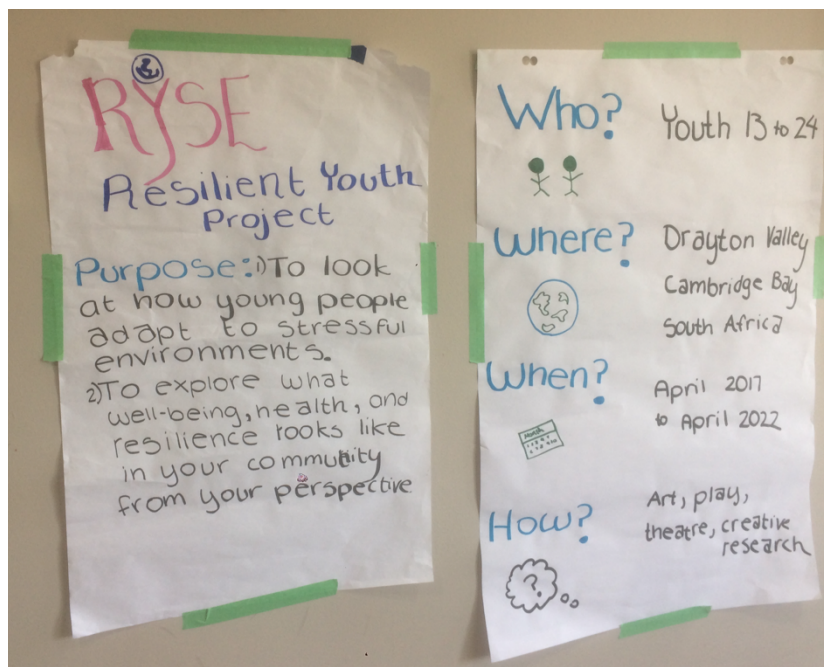 RYSE
Resilient Youth
Project
Purpose: 1) To look
at how young people
adapt to stressful
environments.
2) To explore what
well-being, health, and
resilience looks like
in your community
from your perspective
Who? Youth 13 to 24
Where? Drayton Valley
Cambridge Bay
South Africa
When? April 2017
to April 2022
How? Art, play,
theatre, creative
research
?